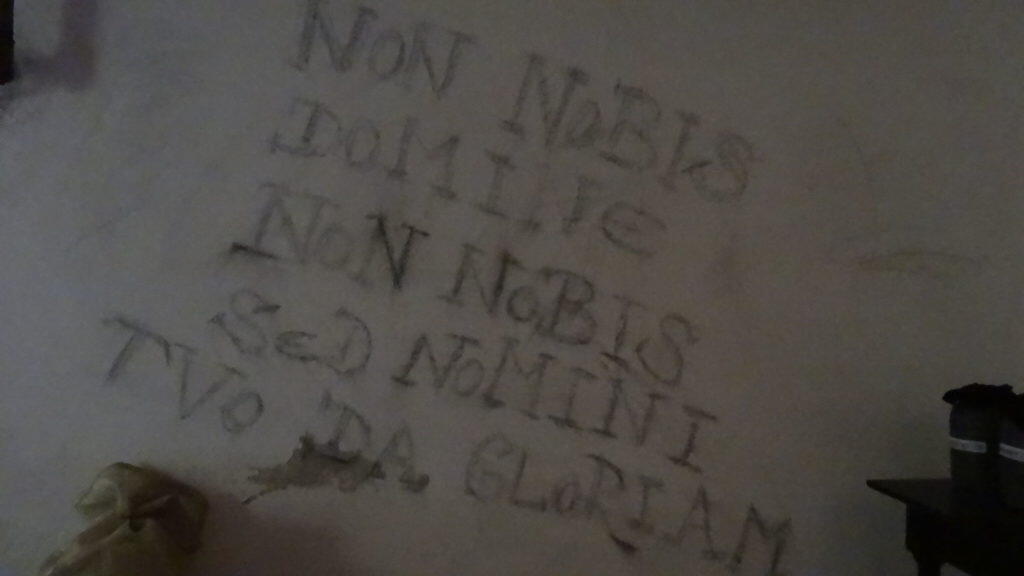 NON NOBIS
DOMINE
NON NOBIS
SED NOMINI
TVO DA GLORIAM